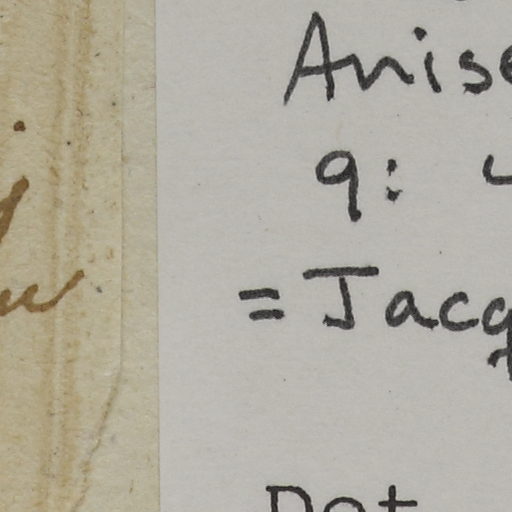 Anise
9:
= Jacq
Det